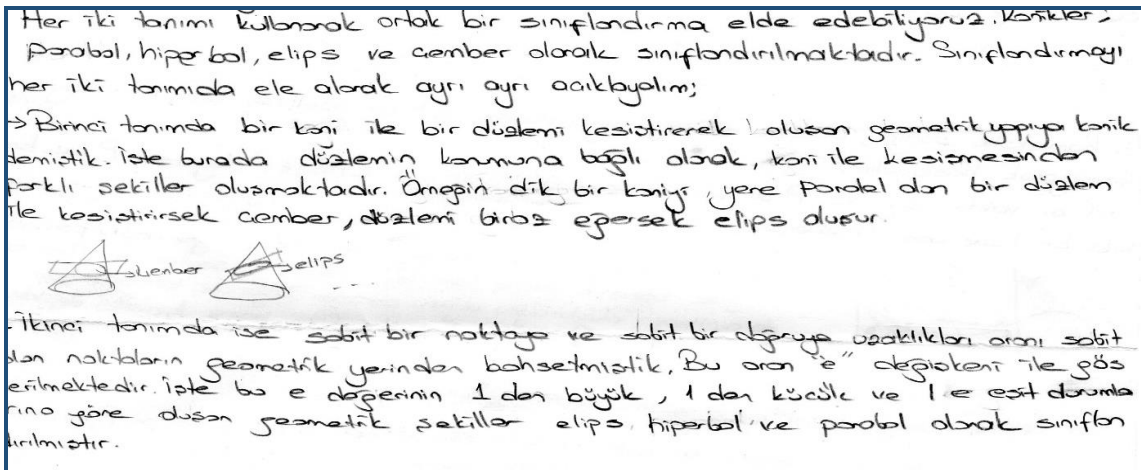 Her iki tanımı kullanarak ortak bir sınıflandırma elde edebiliyoruz. Konikler;
parabol, hiperbol, elips ve çember olarak sınıflandırılmaktadır. Sınıflandırmayı
her iki tanımıda ele alarak ayrı ayrı açıklayalım;
→ Birinci tanımda bir koni ile bir düzlemi kesiştirerek oluşan geometrik yapıya konik
demiştik. İşte burada düzlemin konumuna bağlı olarak, koni ile kesişmesinden
farklı şekiller oluşmaktadır. Örneğin dik bir koniyi, yere paralel olan bir düzlem
ile kesiştirirsek çember, düzlemi biraz eğersek elips oluşur.
çember elips ...
- İkinci tanımda ise sabit bir noktaya ve sabit bir doğruya uzaklıkları oranı sabit
olan noktaların geometrik yerinden bahsetmiştik. Bu oran "e" değişkeni ile gös
erilmektedir. İşte bu e değerinin 1 den büyük, 1 den küçük ve 1 e eşit durumla
rına göre oluşan geometrik şekiller elips, hiperbol ve parabol olarak sınıflan
dırılmıştır.